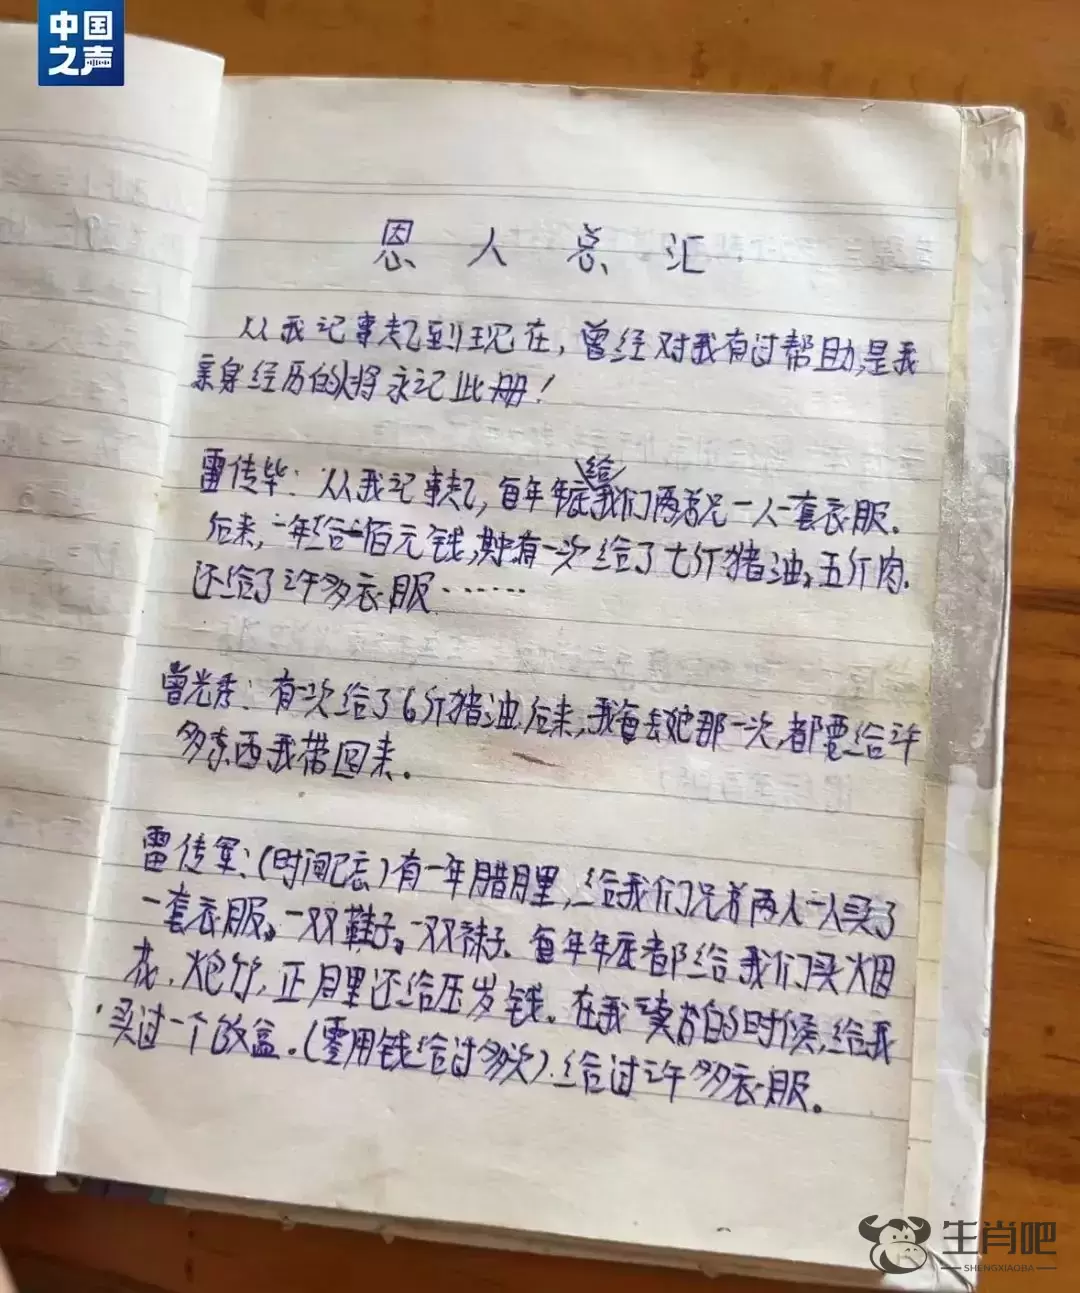 中国
之声
恩人总汇
从我记事起到现在,曾经对我有过帮助,是我
亲身经历的将永记此册!
给
雷传毕:从我记事起,每年年底我们两弟兄一人一套衣服.
后来,一年给一佰元钱,其中有一次给了七斤猪油,五斤肉.
还给了许多衣服.……
曾光秀:有一次给了6斤猪油.后来,我每去她那一次,都要给许
多东西我带回来。
雷传军:(时间忘)有一年腊月里,给我们兄弟两人一人买了
一套衣服,一双鞋子,一双袜子.每年年底都给我们买烟
花,炮竹,正月里还给压岁钱。在我读书的时候,给我
买过一个饭盒.(零用钱给过多次).给过许多衣服。
生肖吧
SHENGXIAOBA